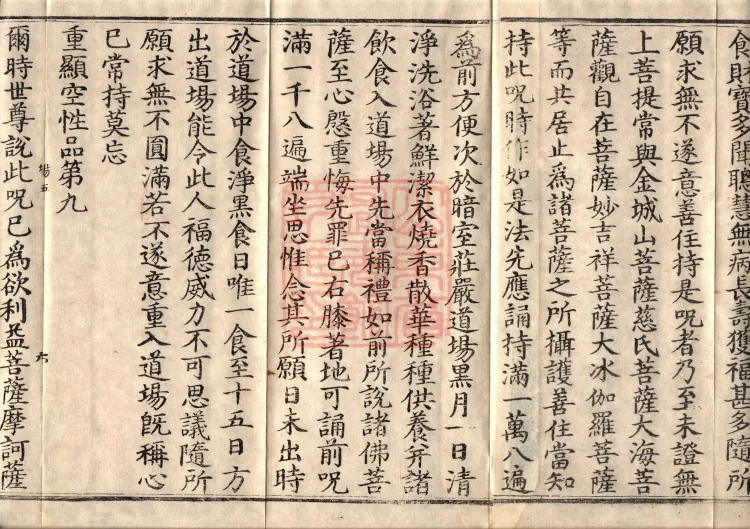 食財寶多聞聰慧無病長壽獲福甚多隨所
願求無不遂意善住持是呪者乃至未證無
上菩提常與金城山菩薩慈氏菩薩大海菩
薩觀自在菩薩妙吉祥菩薩大冰伽羅菩薩
等而共居止為諸菩薩之所攝護善住當知
持此呪時作如是法先應誦持滿一萬八遍
為前方便次於暗室莊嚴道場黑月一日清
淨洗浴著鮮潔衣燒香散華種種供養并諸
飲食入道場中先當稱禮如前所說諸佛菩
薩至心慇重悔先罪已右膝著地可誦前呪
滿一千八遍端坐思惟念其所願日未出時
於道場中食淨黑食日唯一食至十五日方
出道場能令此人福德威力不可思議隨所
願求無不圓滿若不遂意重入道場既稱心
已常持莫忘
重顯空性品第九
場五
六
爾時世尊說此呪已為欲利益菩薩摩訶薩